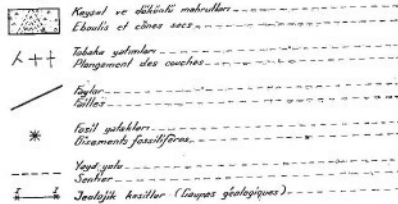 Kaysal ve döküntü mahrutları
Eboulis et cônes secs
Tabaka yatımları
Plongement des couches
Faylar
Failles
Fosil yatakları
Gisements fossilifères
Yaya yolu
Sentier
I I
Jeolojik kesitler (Coupes géologiques)